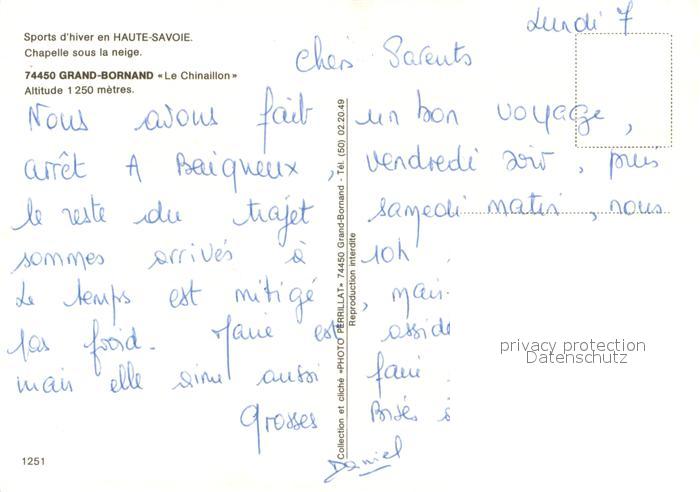 Sports d'hiver en HAUTE-SAVOIE.
Chapelle sous la neige.
74450 GRAND-BORNAND «Le Chinaillon»
Altitude 1 250 mètres.
Lundi 7
Chers Parents
Nous avons fait un bon voyage,
arrêt A Baigneux, vendredi soir, puis
le reste du trajet samedi matin, nous
sommes arrivés à 10h
Le temps est mitigé, mais
pas froid. est
mais elle aime aussi
Grosses Bises
Daniel
Collection et cliché «PHOTO PERRILLAT» 74450 Grand-Bornand - Tél. (50) 02.20.49
Reproduction interdite
privacy protection
Datenschutz
1251